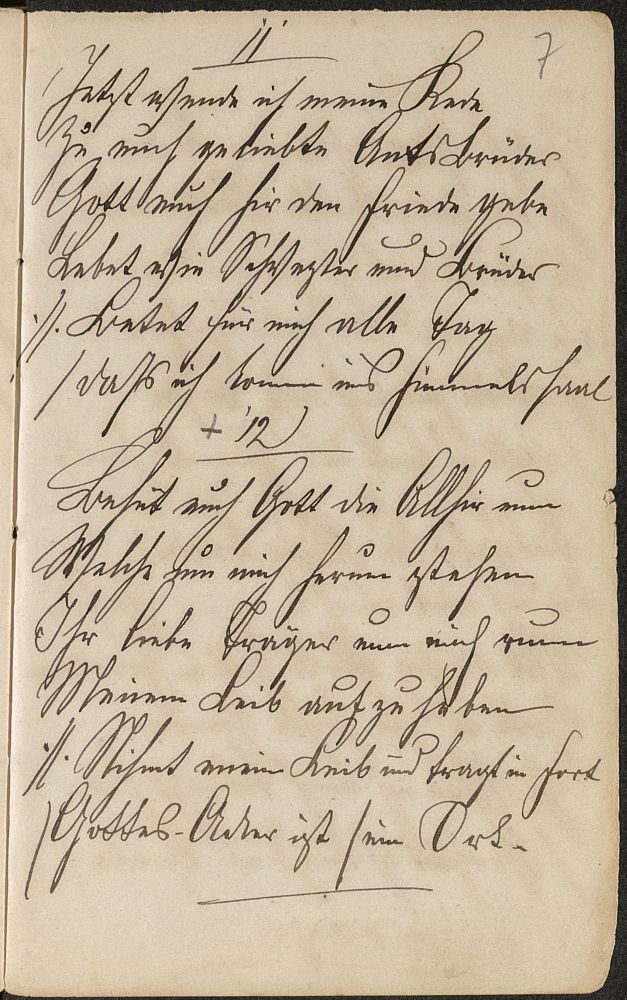 11
7
Jetzt wende ich meine Rede
Zu euch geliebte Amtsbrüder
Gott euch hir den friede gebe
Lebet wie Schwester und Brüder
:/: Betet für mich alle Tag
daß ich komm ins himmelssaal
+ 12)
Behüt euch Gott die Allhir nun
Welche um mich herum stehen
Ihr liebe Träger nun mich
Meinem Leib auf zu heben
:/: Nihmt mein Leib und tragt in fort
Gottes-Acker ist sein Ort.